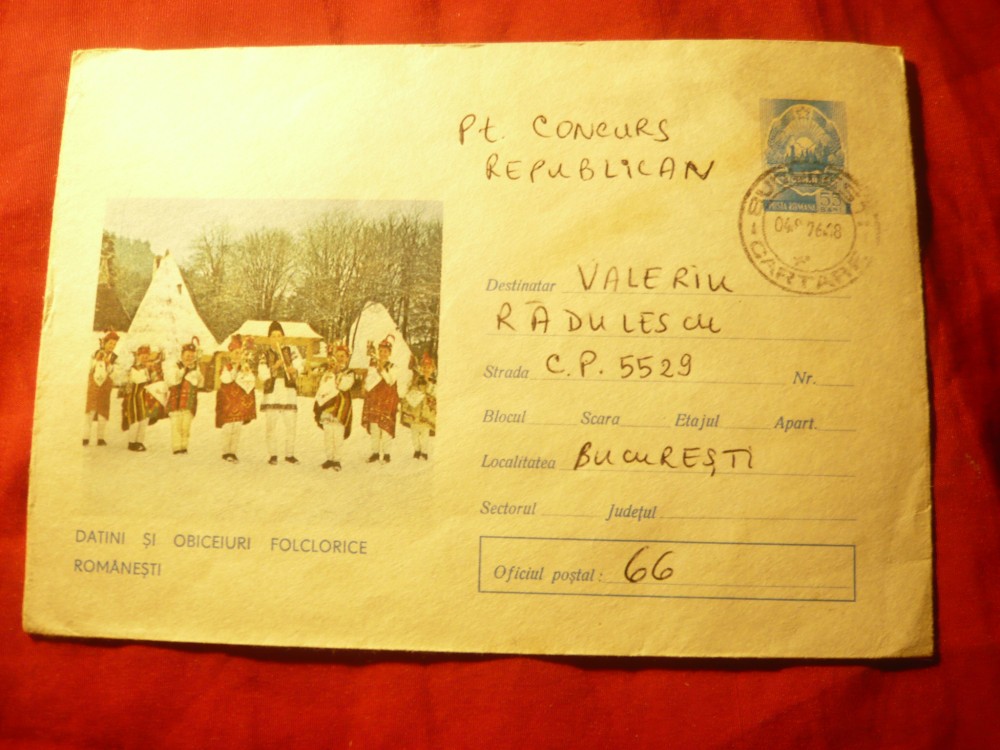 Pt. CONCURS
REPUBLICAN
POSTA ROMANA 55
BUCUREȘTI
CARTARE
Destinatar VALERIU
RĂDULESCU
Strada C.P. 5529 Nr.
Blocul Scara Etajul Apart.
Localitatea BUCUREȘTI
Sectorul Județul
Oficiul poștal: 66
DATINI ȘI OBICEIURI FOLCLORICE
ROMÂNEȘTI